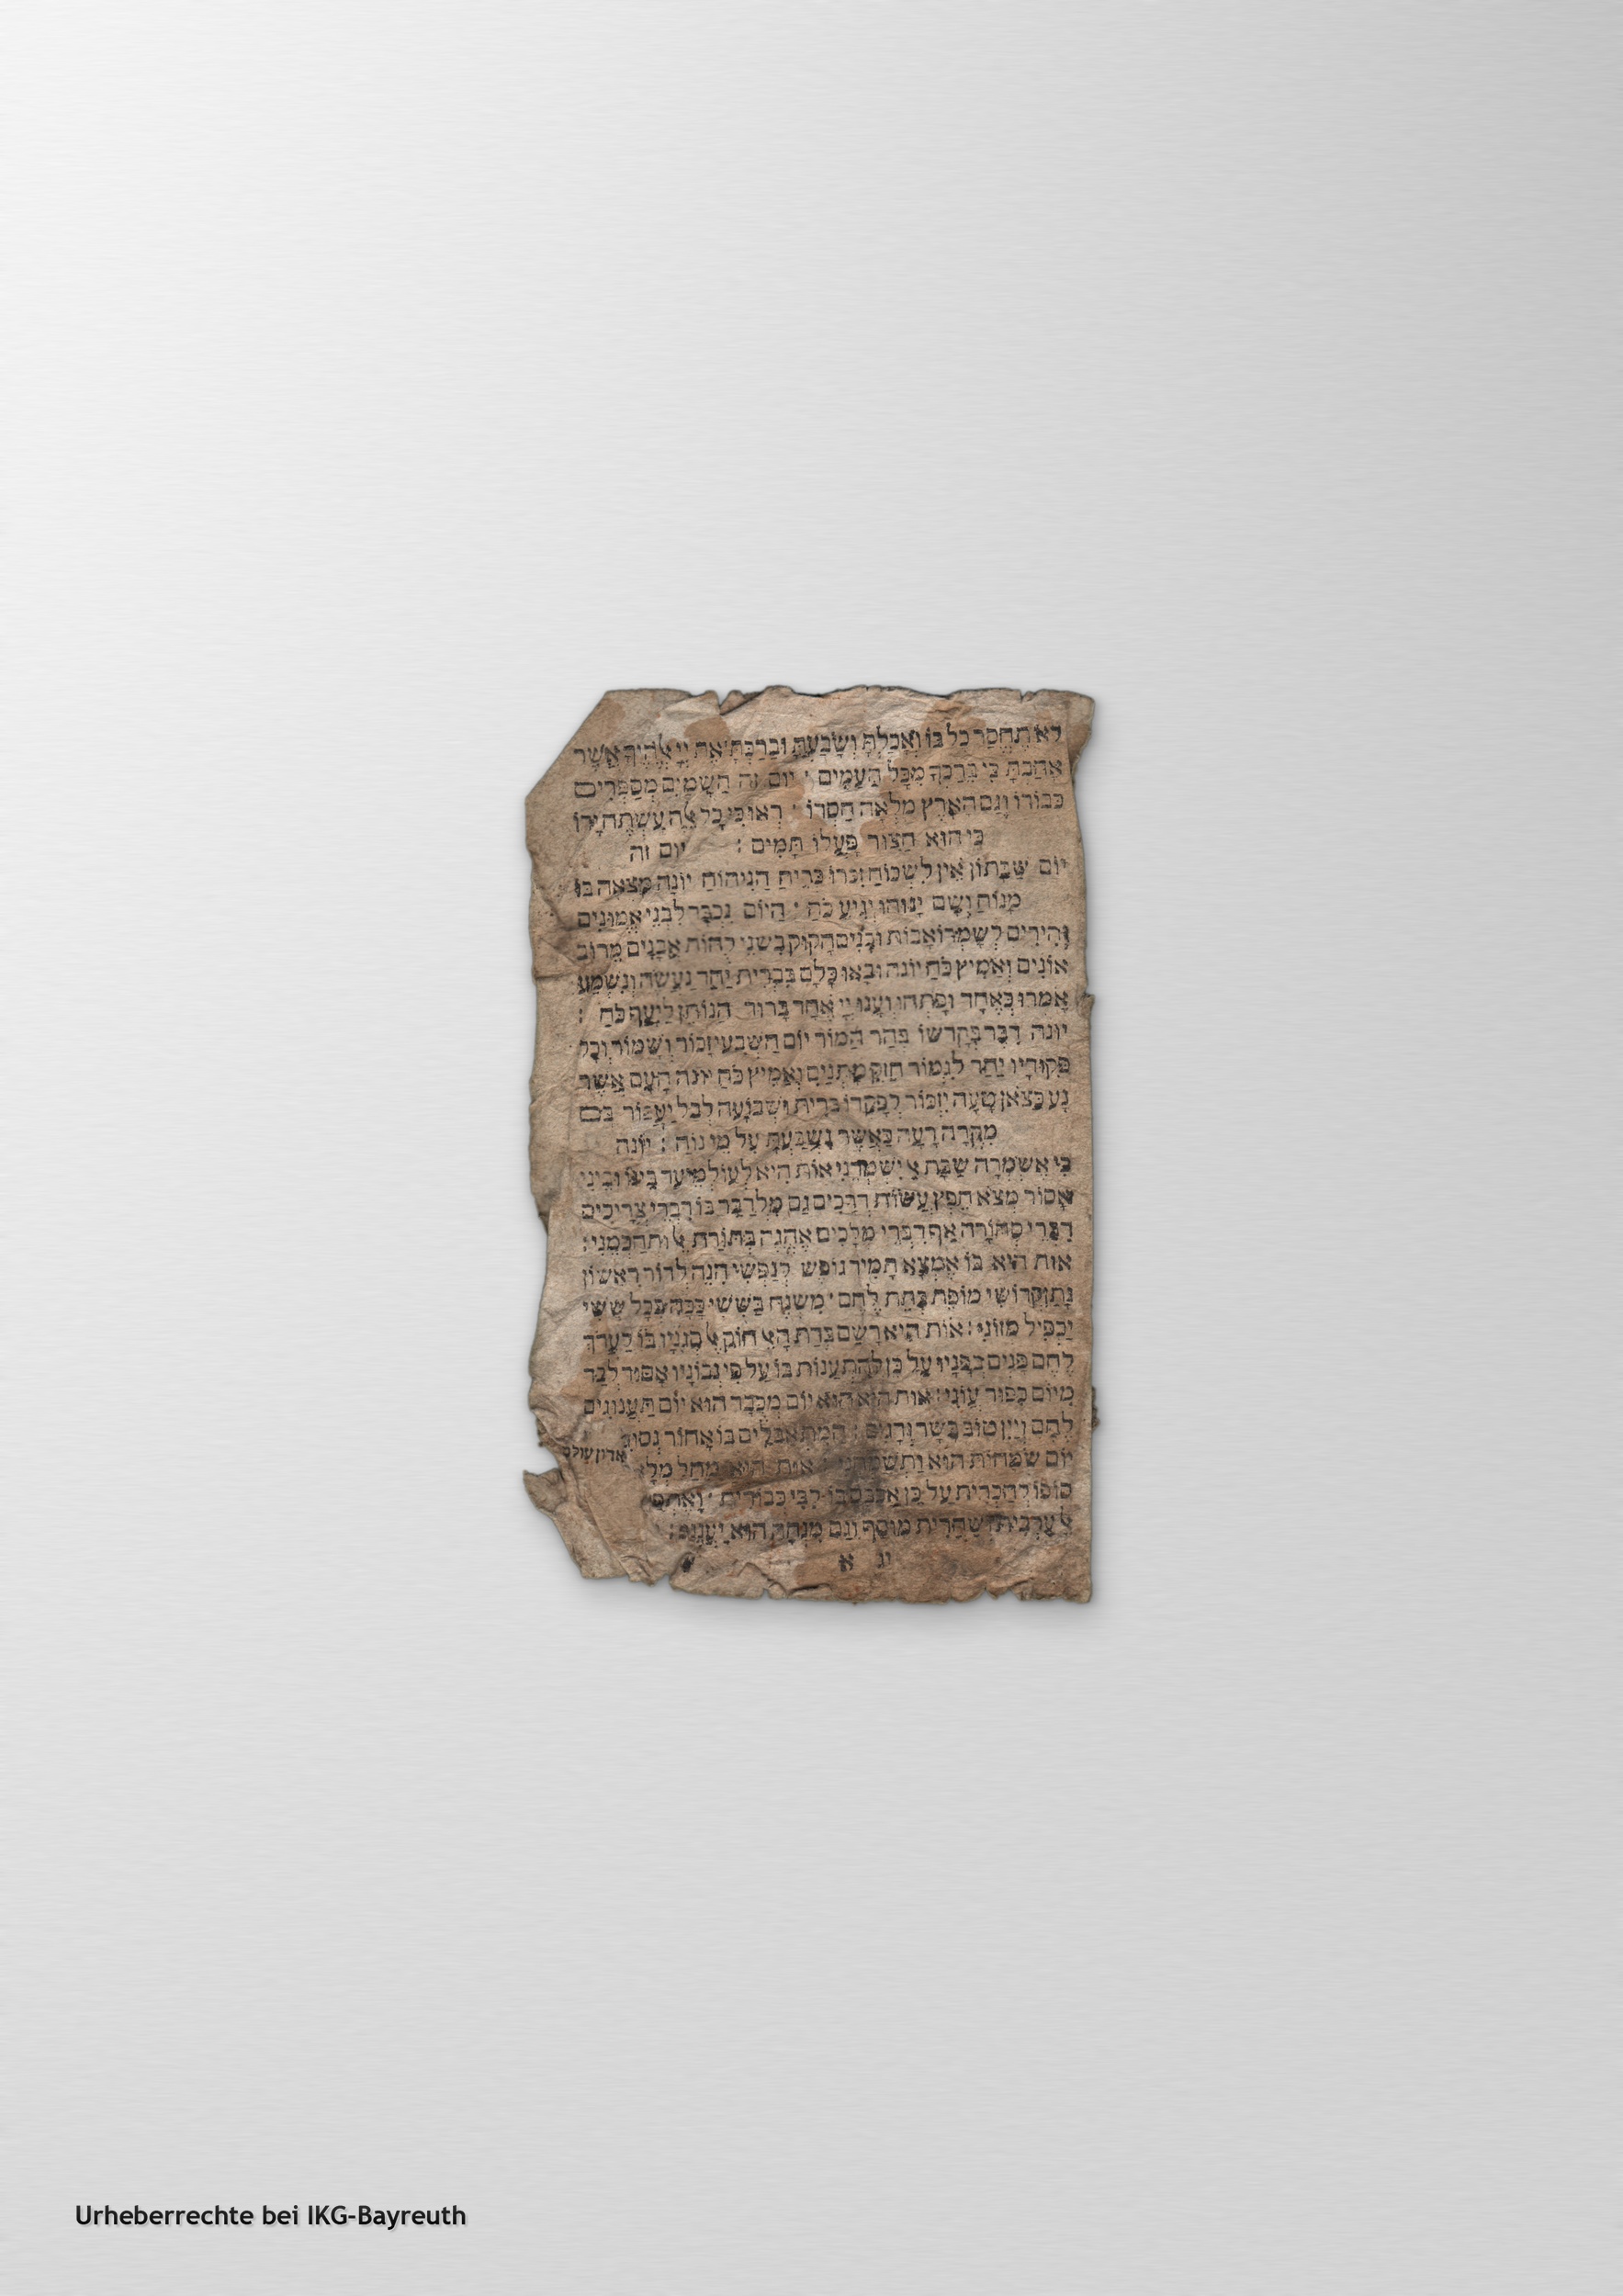 לא תחסר כל בו ואכלת ושבעת וברכת את ייי אלהיך אשר
אהבת כי ברכך מכל העמים : יום זה השמים מספרים
כבודו וגם הארץ מלאה חסדו ׳ ראו כי כל אלה עשתה ידו
כי הוא הצור פעלו תמים : יום זה
יום שבתון אין לשכוח זכרו כריח הניחוח יונה מצאה בו
מנוח ושם ינוחו יגיעי כח : היום נכבד לבני אמונים
זהירים לשמרו אבות ובנים חקוק בשני לחות אבנים מרוב
אונים ואמיץ כח יונה ובאו כלם בברית יחד נעשה ונשמע
אמרו כאחד ופתחו וענו ייי אחד ברוך הנותן ליעף כח :
יונה דבר בקדשו בהר המור יום השביעי זכור ושמור וכל
פקודיו יחד לגמור חזק מתנים ואמיץ כח יונה העם אשר
נע כצאן טעה יזכור לפקדו ברית ושבועה לבל יעבור בם
מקרה רעה כאשר נשבעת על מי נוח : יונה
כי אשמרה שבת אל ישמרני אות היא לעולמי עד בינו וביני
אסור מצא חפץ עשות דרכים גם מלדבר בו דברי צריכים
דברי סחורה אף דברי מלכים אהגה בתורת אל ותחכמני :
אות היא בו אמצא תמיד נופש לנפשי הנה לדור ראשון
נתן קדושי מופת בתת לחם משנה בששי ככה בכל ששי
יכפיל מזוני : אות היא רשם בדת האל חוק אל סגניו בו לערך
לחם פנים בפניו על כן להתענות בו על פי נבוניו אסור לבד
מיום כפור עוני : אות היא הוא יום מכבד הוא יום תענוגים
לחם ויין טוב בשר ודגים : המתאבלים בו אחור נסוגי
יום שמחות הוא ותשמחני : אות היא מחל מלא
אדון עולם
סופו להכרית על כן אכבס בו לבי כבורית ׳ ואתפ
אל ערבית ושחרית מוסף וגם מנחה הוא יענני :
יג א
Urheberrechte bei IKG-Bayreuth